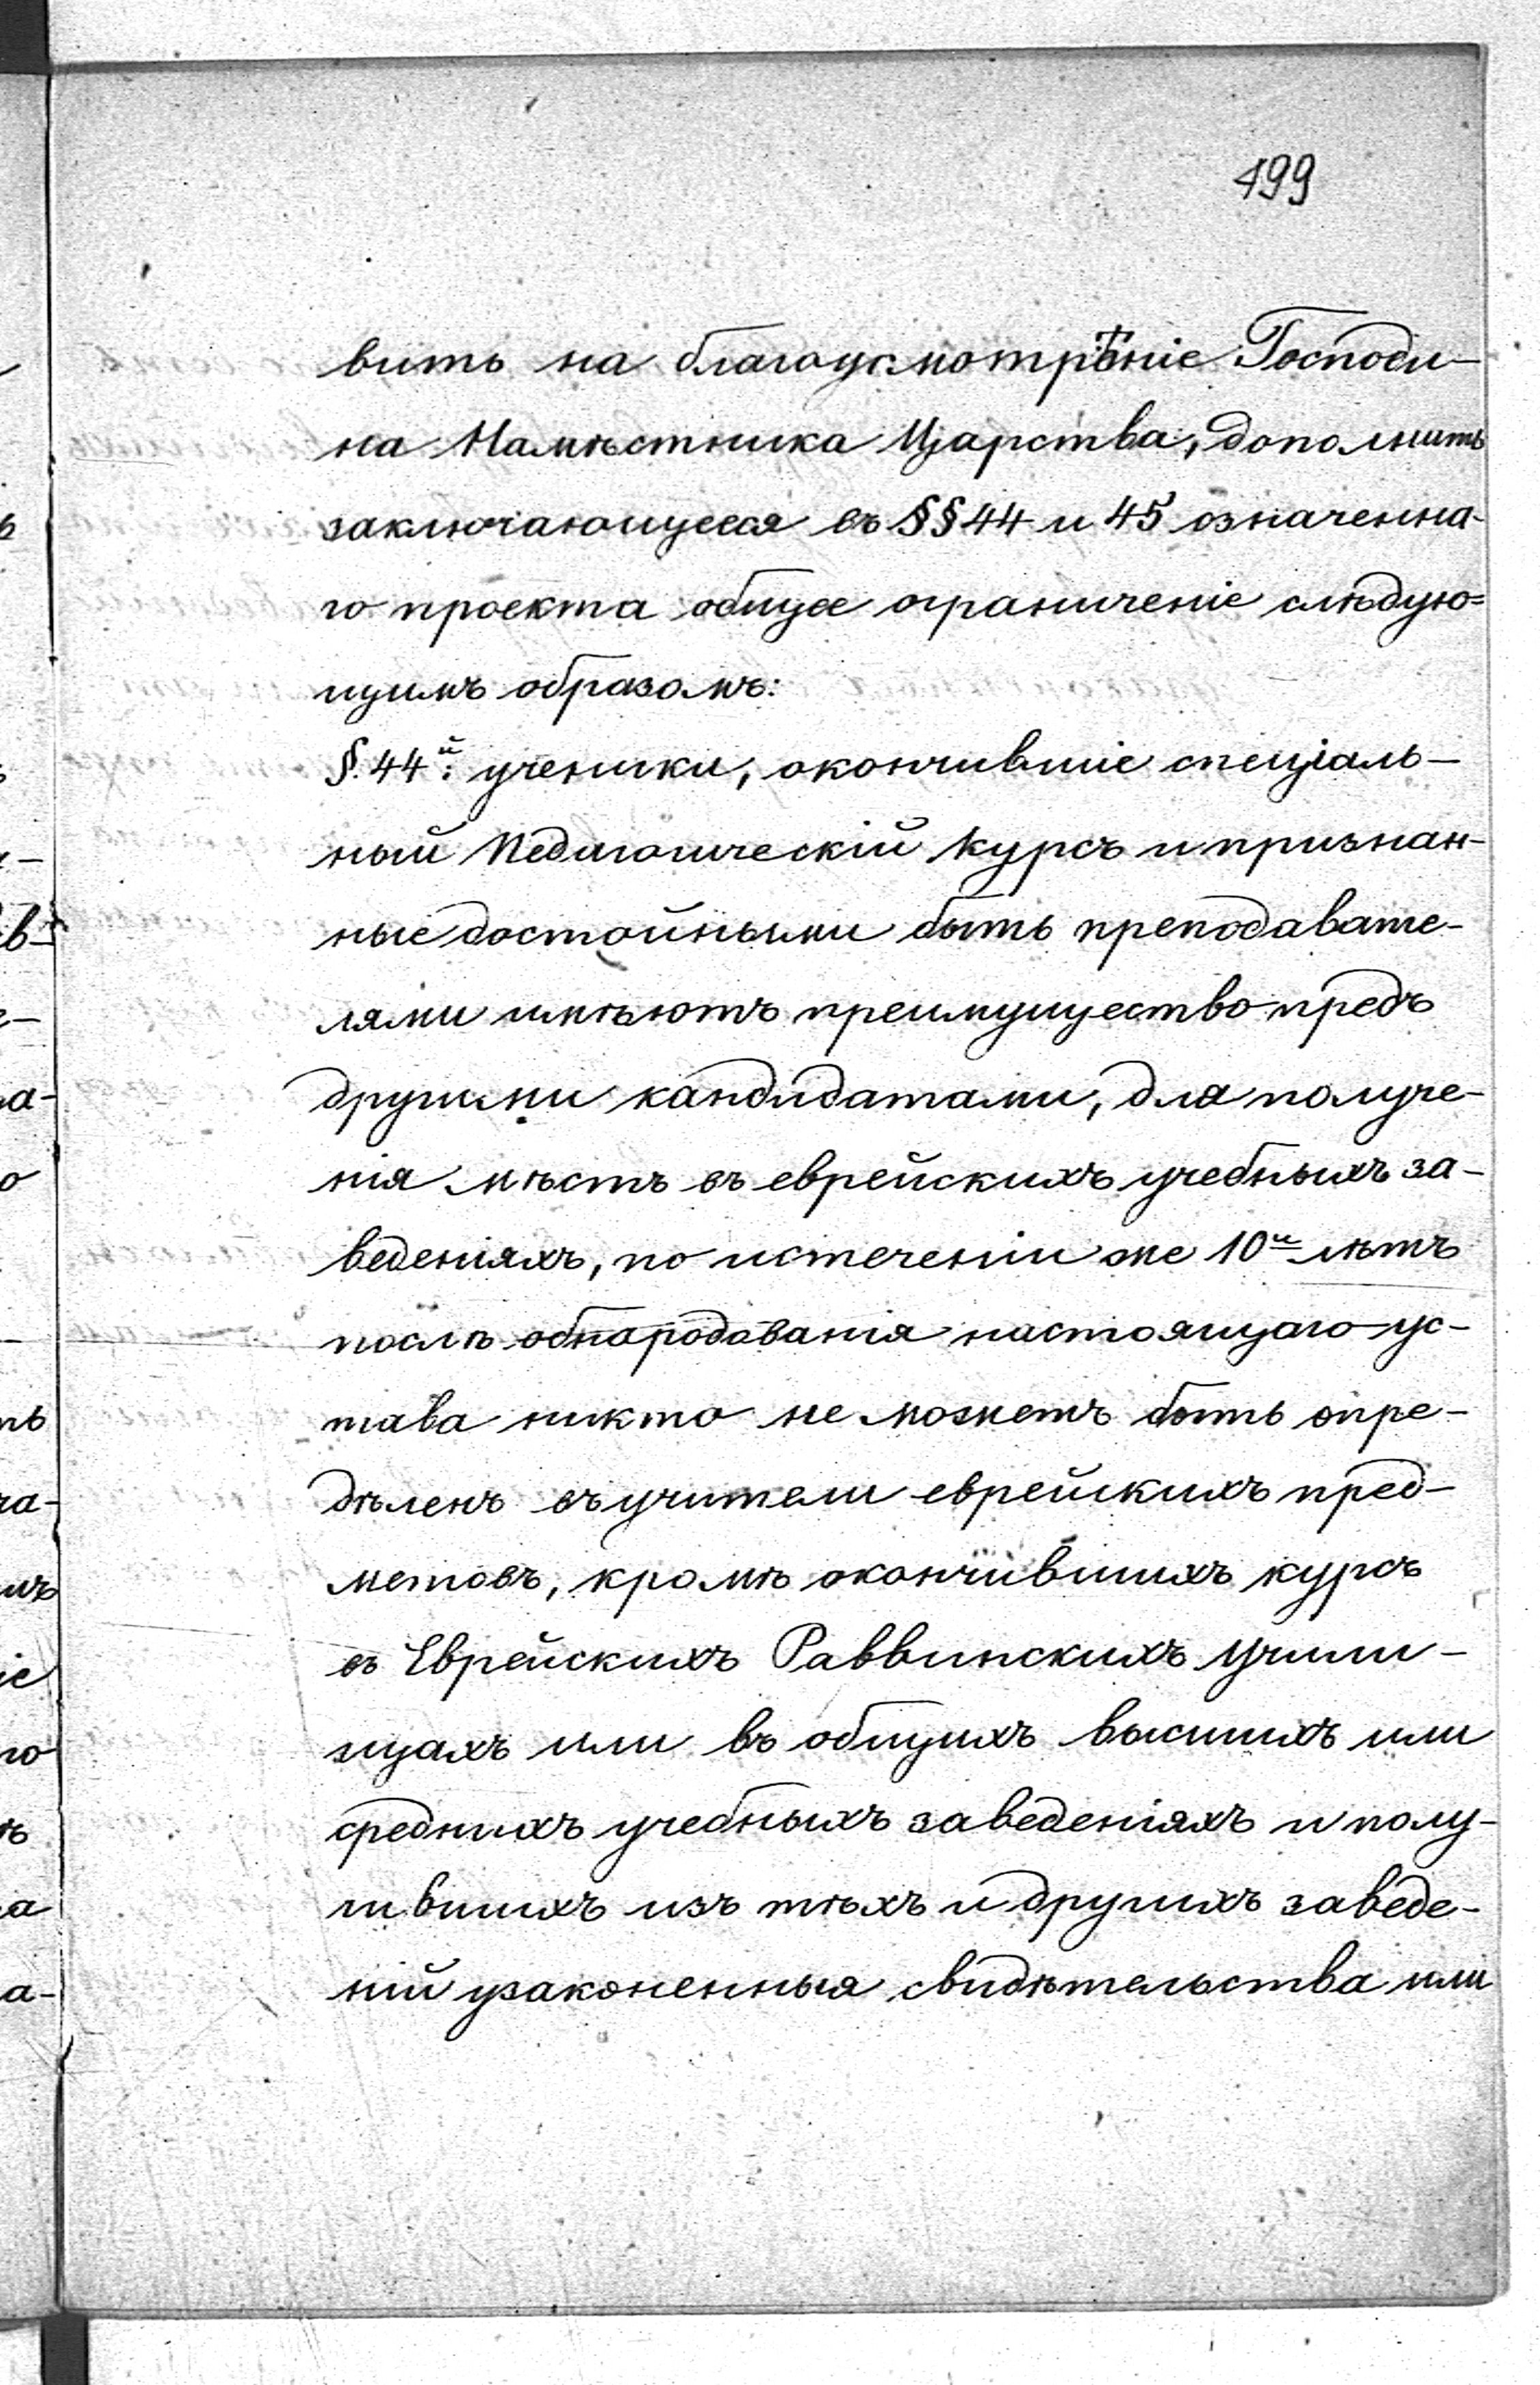 499
вить на благоусмотрѣніе Господи-
на Намѣстника Царства, дополнить
заключающееся въ §§ 44 и 45 означенна-
го проекта общее ограниченіе слѣдую=
щимъ образомъ:
§. 44й: ученики, окончившіе спеціаль-
ный Педагогическій курсъ и признан-
ные достойными быть преподавате-
лями имѣютъ преимущество предъ
другими кандидатами, для получе-
нія мѣстъ въ еврейскихъ учебныхъ за-
веденіяхъ, по истеченіи же 10и лѣтъ
послѣ обнародованія настоящаго ус-
тава никто не можетъ быть опре-
дѣленъ въ учители еврейскихъ пред-
метовъ, кромѣ окончившихъ курсъ
въ Еврейскихъ Раввинскихъ Учили-
щахъ или въ общихъ высшихъ или
среднихъ учебныхъ заведеніяхъ и полу-
чившихъ изъ тѣхъ и другихъ заведе-
ній узаконенныя свидѣтельства или